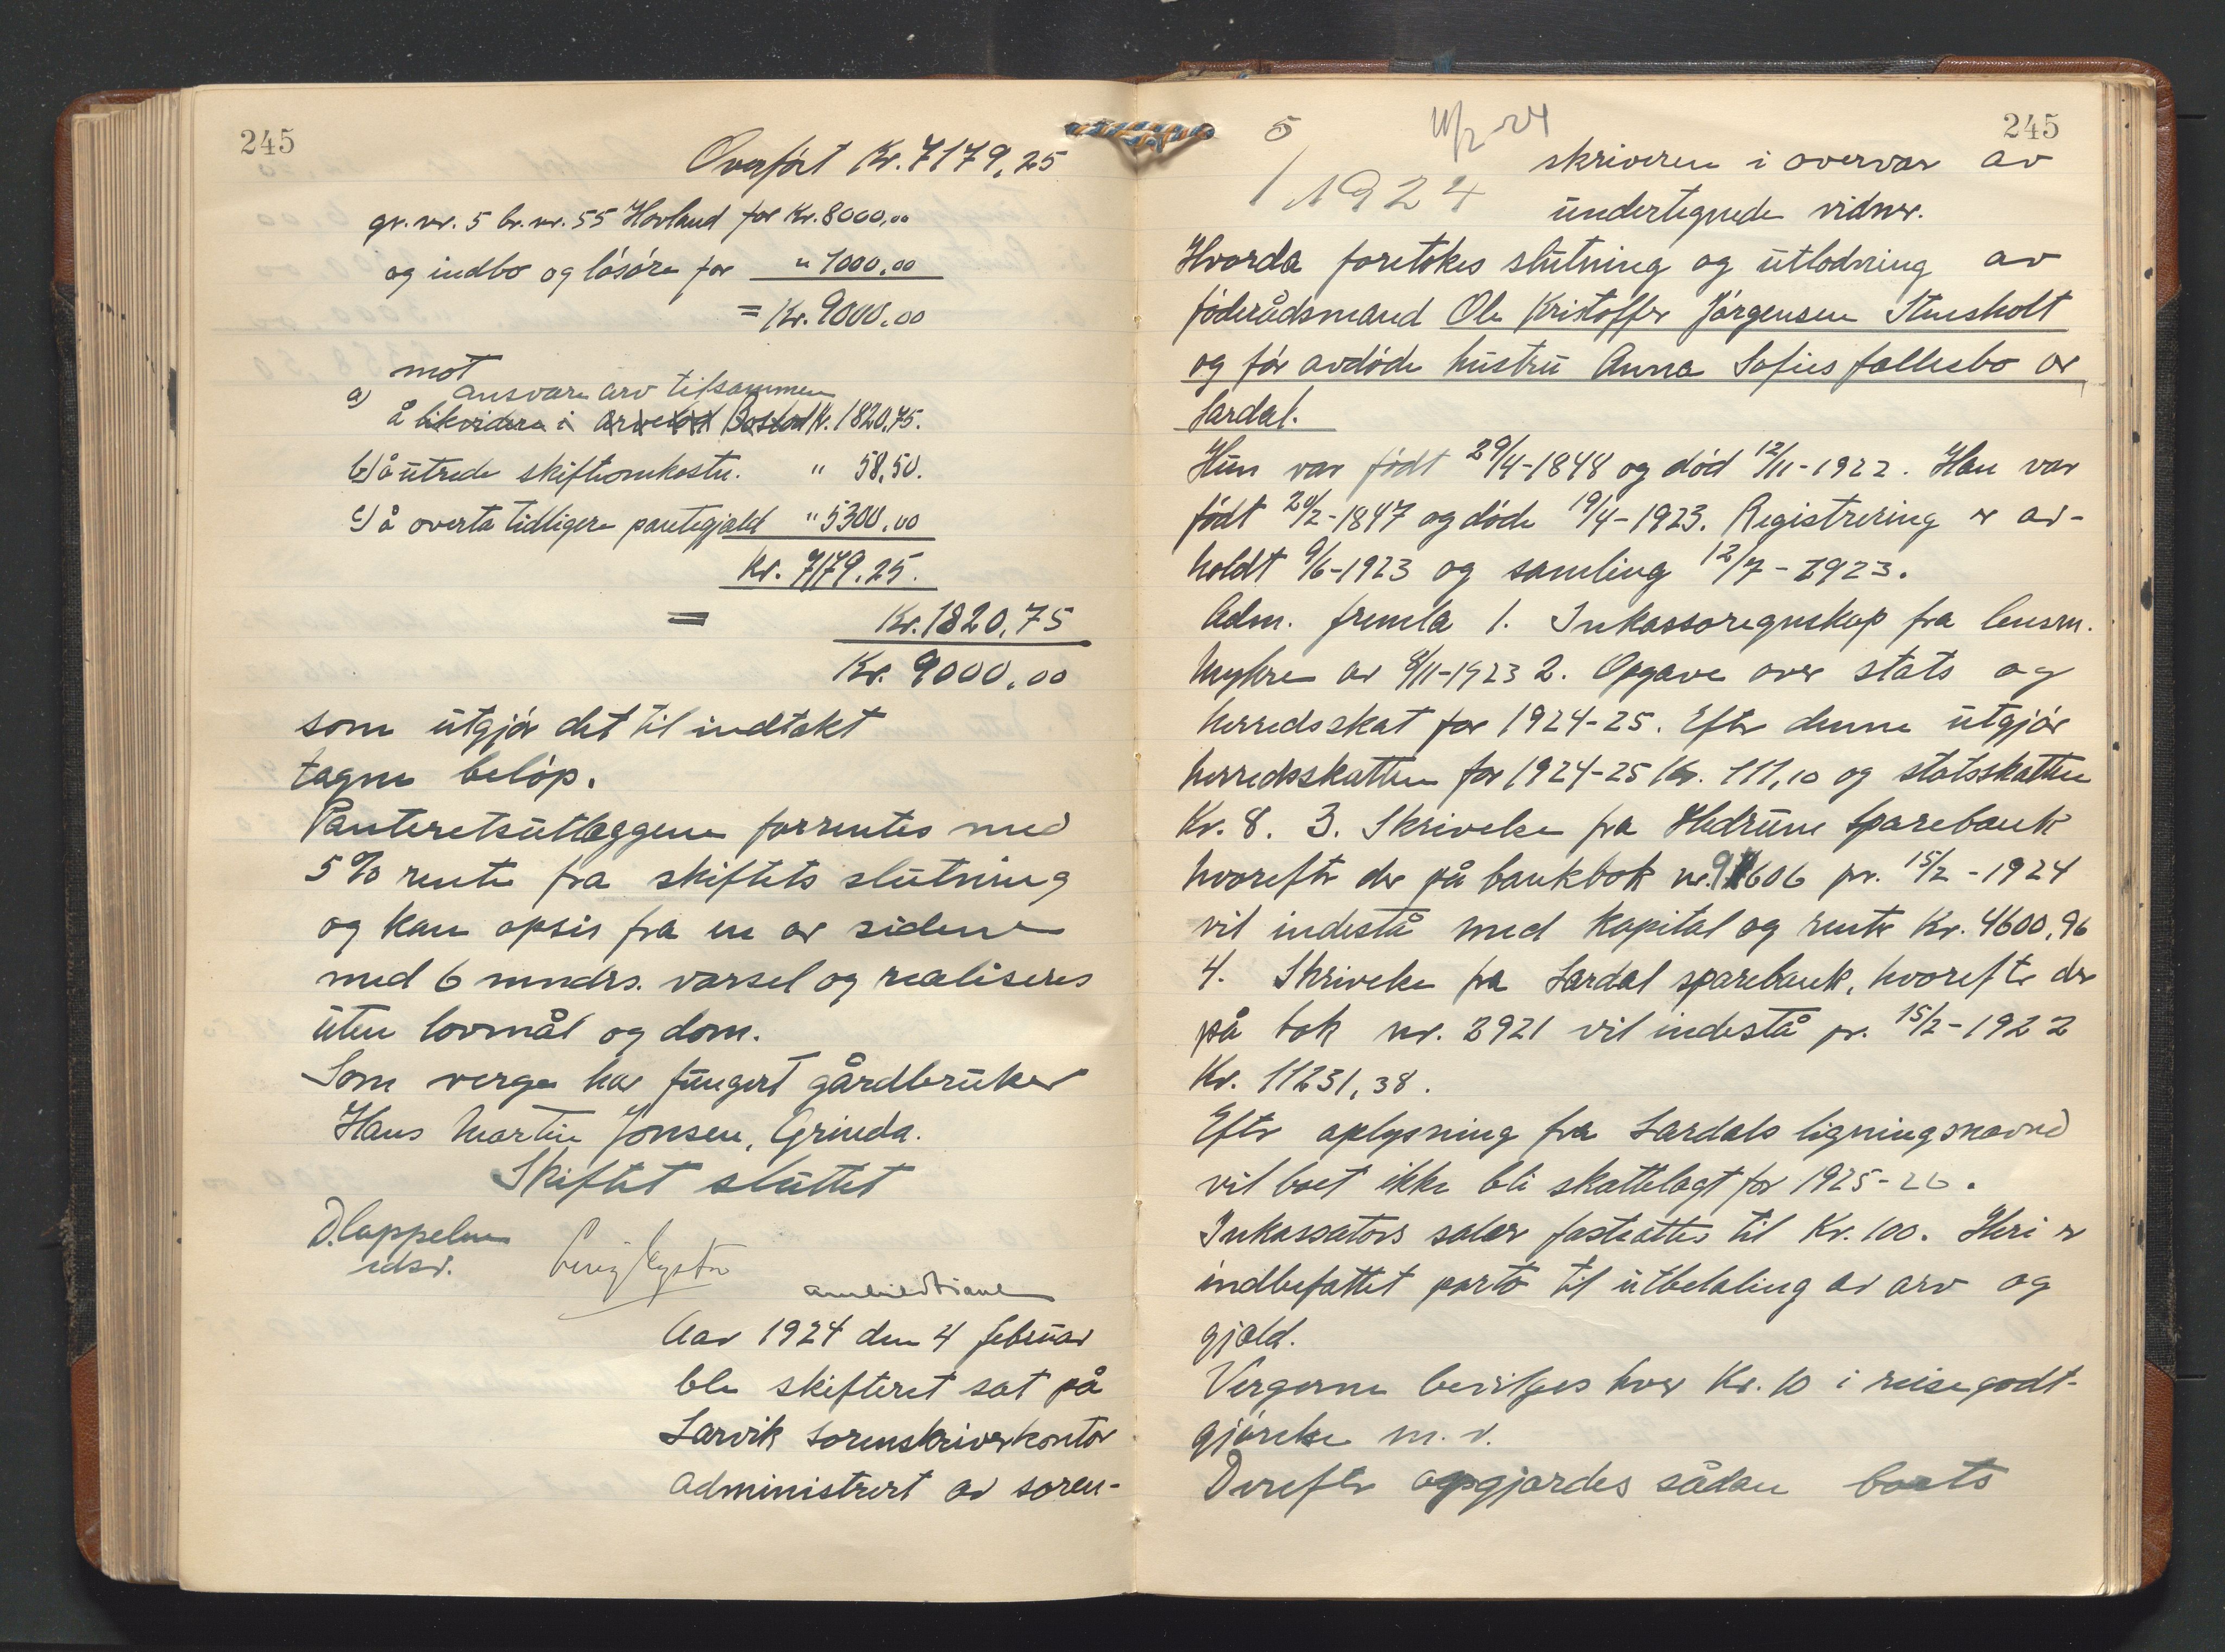 245
Overført Kr. 7179,25
gr. nr. 5 br. nr. 55 Hovland for Kr. 8000,00
og indbo og løsøre for " 1000,00
= Kr. 9000,00
mot
a) ansvare arv tilsammen
å likvidere i arvelod Boslod Kr. 1820,75.
b) å utrede skifteomkostn. " 58,50.
c) å overta tidligere pantegjæld " 5300,00
Kr. 7179,25.
= Kr. 1820,75
Kr. 9000,00
som utgjør det til indtækt
tagne beløp.
Panteretsutlæggene forrentes med
5% rente fra skiftets slutning
og kan opsies fra en av sidene
med 6 mndrs. varsel og realiseres
uten lovmål og dom.
Som verge har fungert gårdbruker
Hans Martin Jonsen, Grinda.
Skiftet sluttet
D. Cappelen
edsv.
Aar 1924 den 4 februar
ble skifteret sat på
Larvik sorenskriverkontor
administrert av soren-
245
5
11/2-24
1 1924
skriveren i overvær av
undertegnede vidner.
Hvorda foretokes slutning og utlodning av
føderådsmand Ole Kristoffer Jørgensen Stensholt
og før avdøde hustru Anna Sofies fællesbo av
Lardal.
Hun var født 29/4-1848 og død 12/11-1922. Han var
født 20/2-1847 og døde 19/4-1923. Registrering er av-
holdt 9/6-1923 og samling 12/7-1923.
Adm. fremla 1. Inkassoregnskap fra lensm.
Myhre av 8/11-1923 2. Opgave over stats og
herredsskat for 1924-25. Efter denne utgjør
herredsskatten for 1924-25 Kr. 111,10 og statsskatten
Kr. 8. 3. Skrivelse fra Hedrum Sparebank
hvorefter der på bankbok nr. 9606 pr. 15/2-1924
vil indestå med kapital og rente Kr. 4600,96
4. Skrivelse fra Lardal sparebank, hvorefter der
på bok nr. 2921 vil indestå pr. 15/2-1922
Kr. 11231,38.
Efter oplysning fra Lardals ligningsnævnd
vil boet ikke bli skattelagt for 1925-26.
Inkassators salær fastsættes til Kr. 100. Heri er
indbefattet porto til utbetaling av arv og
gjæld.
Vergerne bevilges hver Kr. 10 i reisegodt-
gjørelse m. v.
Derefter opgjordes sådan boets